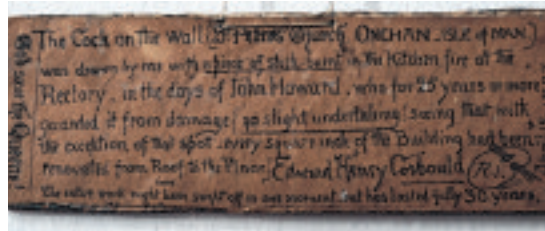 The Cock on the Wall (St Peters Church, ONCHAN - ISLE of MAN)
was drawn by me with a piece of stick burnt in the Kitchen fire at the
Rectory, in the days of John Howard, who for 25 years or more
guarded it from damage (no slight undertaking) seeing that, with
the exception of that spot, every square inch of the Building had been
renovated from Roof to the Floor. Edward Henry Corbould R.I.
The entire work might have been swept off in one moment, but has lasted fully 30 years.
God save the Queen!